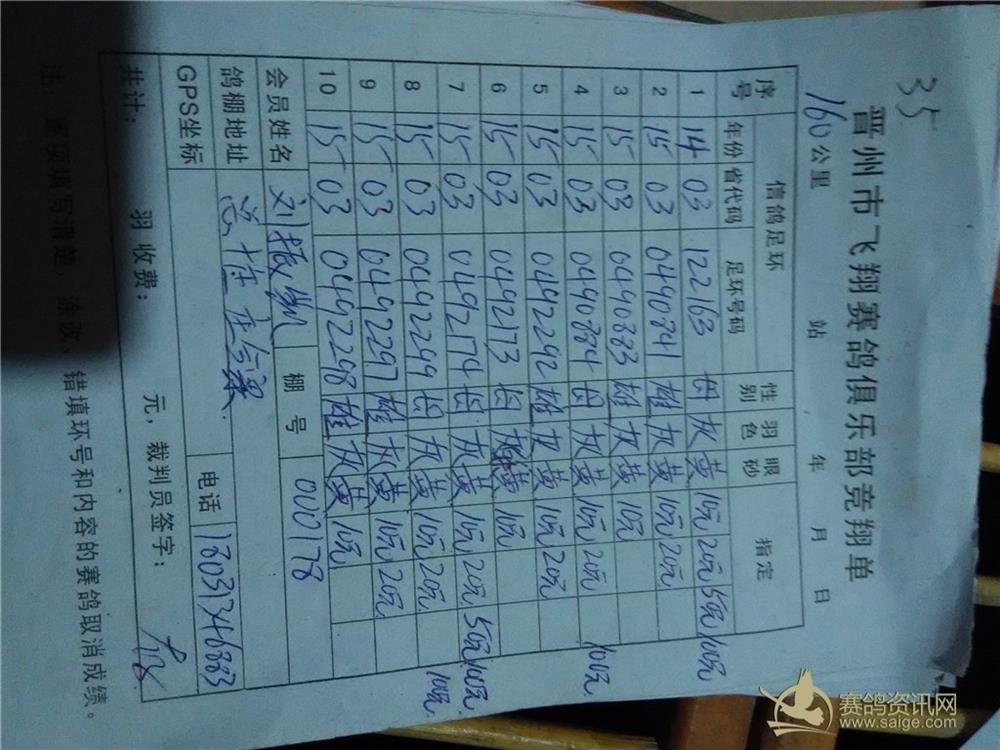 35
晋州市飞翔赛鸽俱乐部竞翔单
160公里 站 年 月 日
序号 信鸽足环 性别 羽色 眼砂 指定
年份 省代码 足环号码
1 14 03 122163 灰 黄 10元 20元 50元 100元
2 15 03 0490841 雄 灰 黄 10元 20元
3 15 03 0490883 雄 灰 黄 10元
4 15 03 0490884 灰 黄 10元 20元 100元
5 15 03 0492292 雄 灰 黄 10元 20元
6 15 03 0492173 黄 10元
7 15 03 0492174 灰 黄 10元 20元 50元 100元
8 15 03 0492299 灰 黄 10元 20元 100元
9 15 03 0492297 雄 灰 黄 10元 20元
10 15 03 0492298 雄 灰 黄 10元
会员姓名 刘 棚号 010178
鸽棚地址
GPS坐标 电话
共计： 羽收费： 元，裁判员签字：
注：逐项填写清楚，涂改、错填环号和内容的赛鸽取消成绩。
赛鸽资讯网
www.saige.com